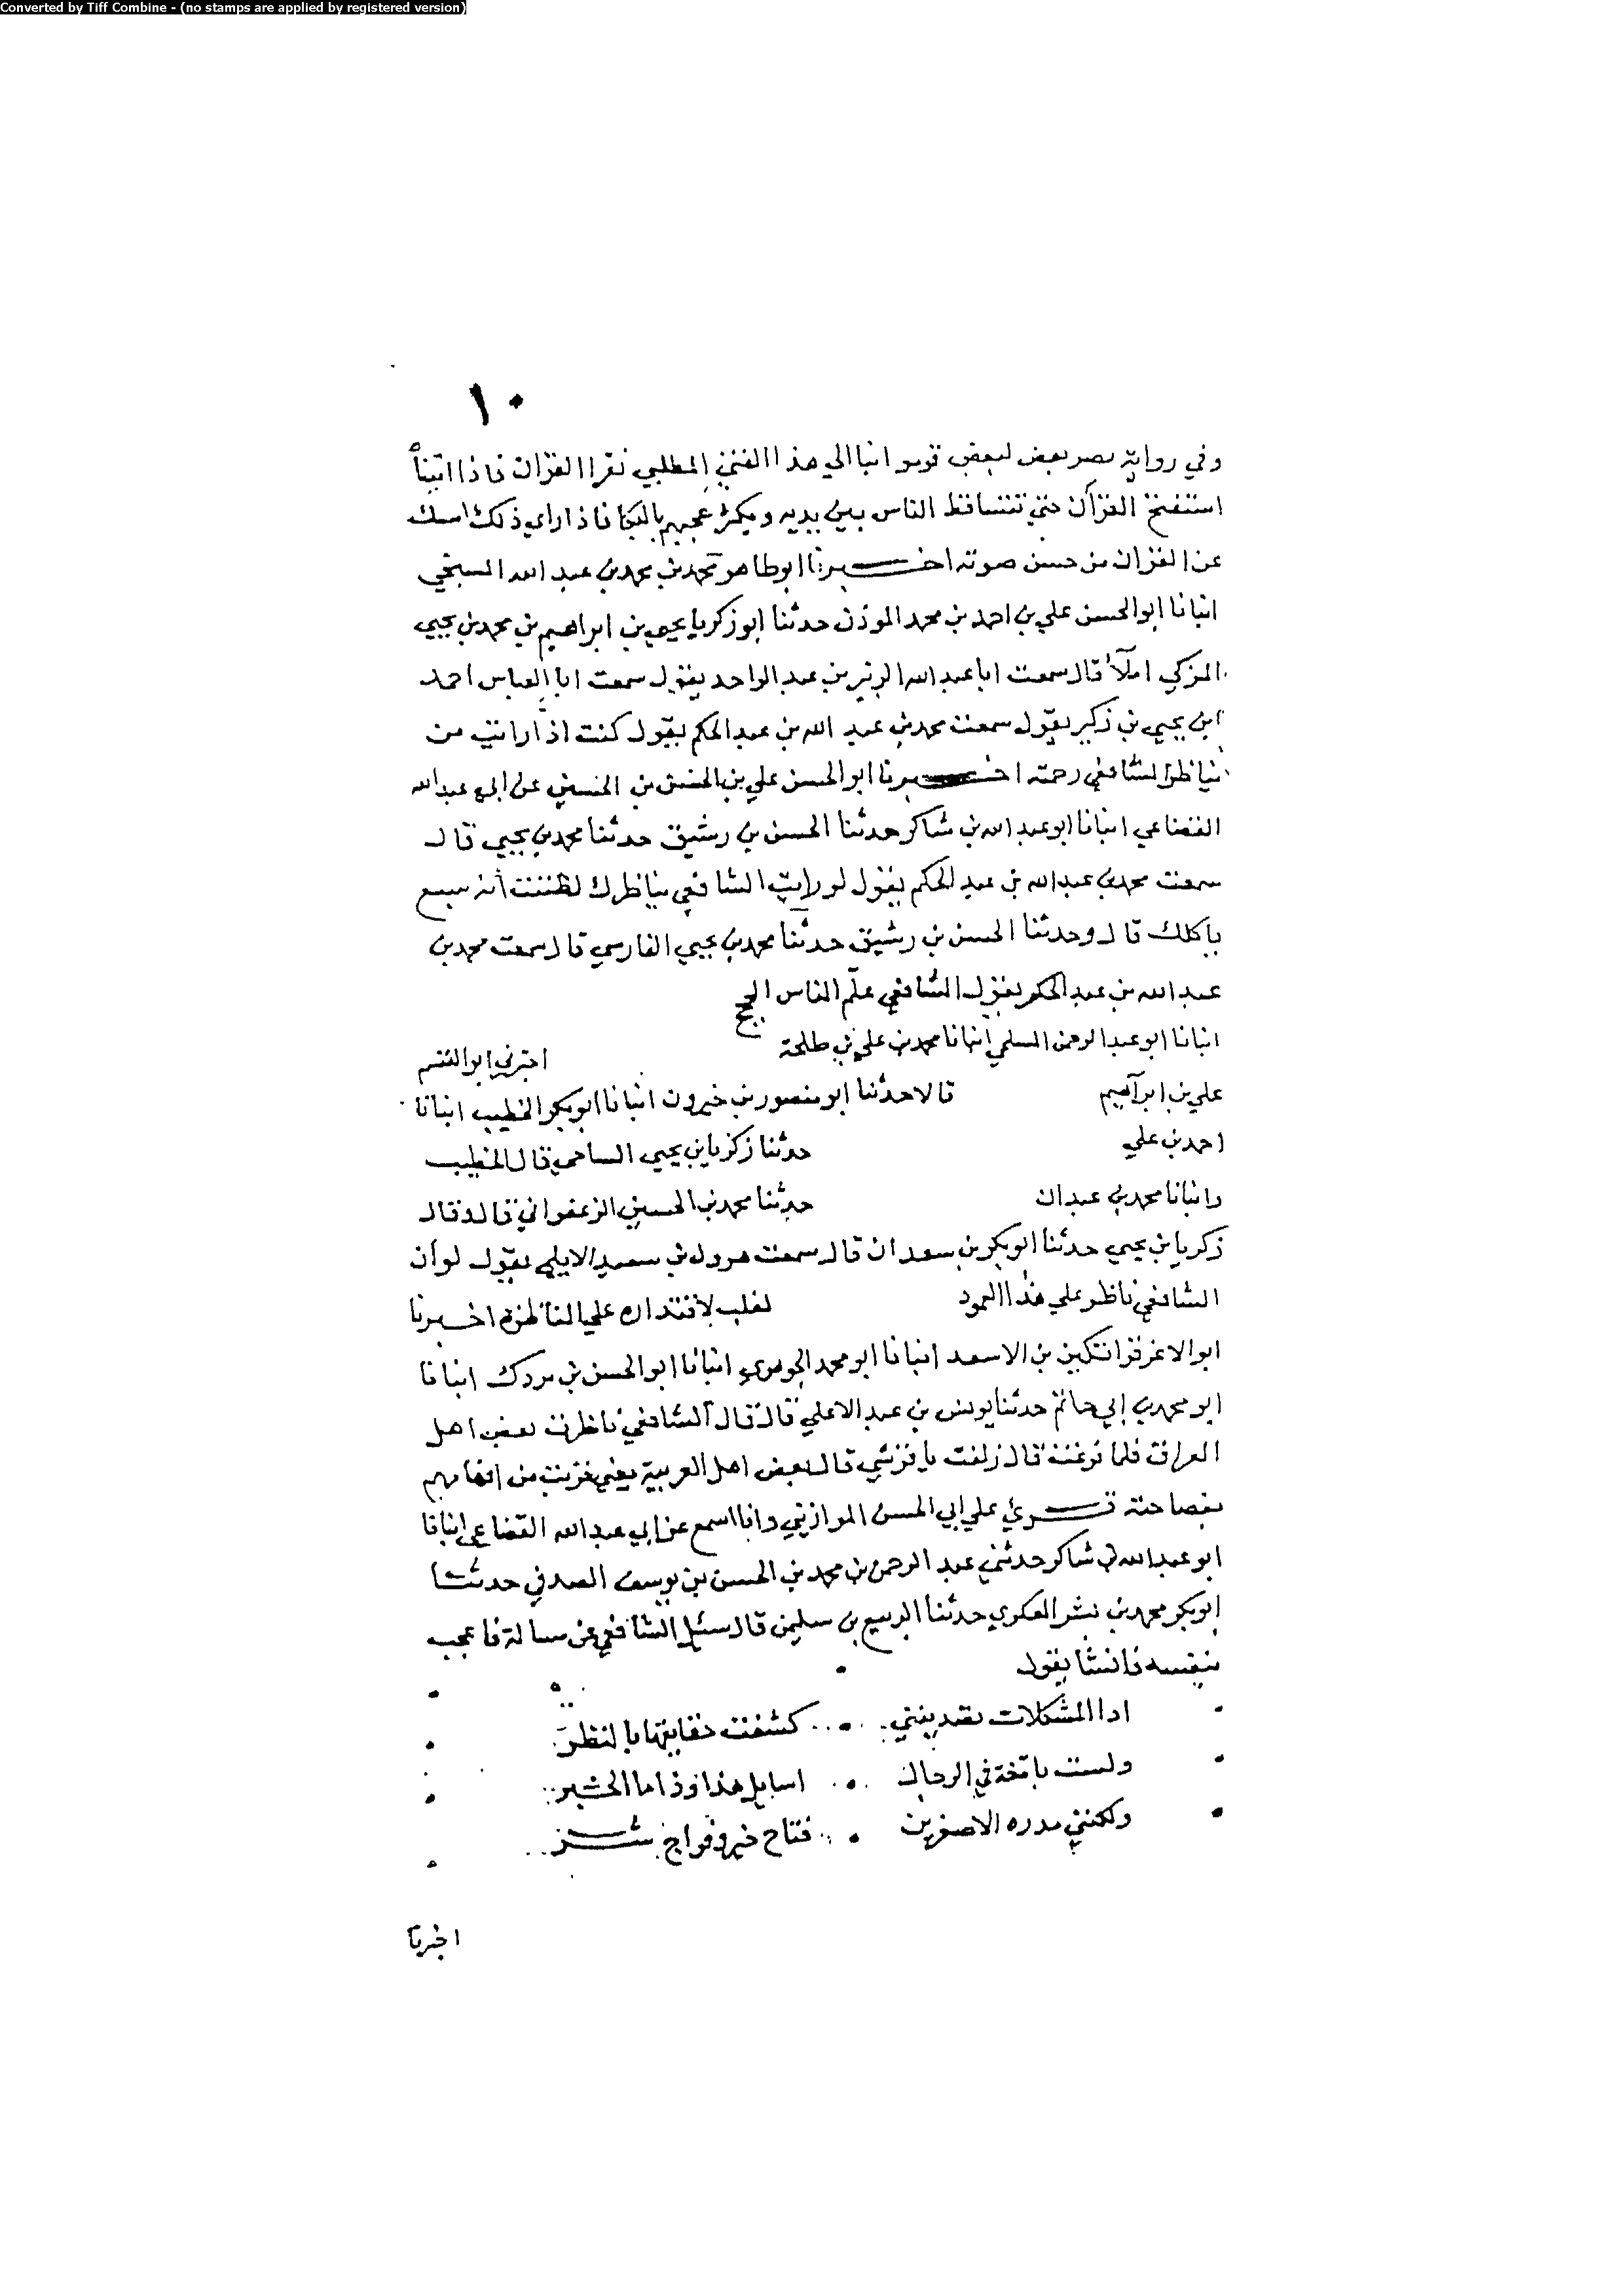 Converted by Tiff Combine - (no stamps are applied by registered version)
١٠
وفي رواية نصر بعض لبعض قوموا انبا الي هذا الفتي المطلبي نقرا القران فاذا اتيناه
استفتح القرآن حتي تتساقط الناس بين يديه ويكثر عجيجهم بالبكا فاذا راي ذلك امسك
عن القران من حسن صوته اخبرنا ابو طاهر محمد بن محمد بن عبد الله السبخي
انبانا ابو الحسن علي بن احمد بن محمد الموذن حدثنا ابو زكريا يحيي بن ابراهيم بن محمد بن يحيي
المزكي املآ قال سمعت ابا عبد الله الزبير بن عبد الواحد يقول سمعت ابا العباس احمد
ابن يحيي بن زكير يقول سمعت محمد بن عبد الله بن عبد الحكم يقول كنت اذا رايت من
يناظر الشافعي رحمته اخبرنا ابو الحسن علي بن الحسن بن الحسين عن ابي عبد الله
القضاعي انبانا ابو عبد الله بن شاكر حدثنا الحسن بن رشيق حدثنا محمد بن يحيي قال
سمعت محمد بن عبد الله بن عبد الحكم يقول لو رايت الشافعي يناظرك لظننت انه سبع
ياكلك قال وحدثنا الحسن بن رشيق حدثنا محمد بن يحيي الفارسي قال سمعت محمد بن
عبد الله بن عبد الحكم يقول الشافعي علّم الناس الحجج
انبانا ابو عبد الرحمن السلمي انبانا محمد بن علي بن طلحة اخبرني ابو القسم
علي بن ابراهيم قالا حدثنا ابو منصور بن خيرون انبانا ابو بكر الخطيب انبانا
احمد بن علي حدثنا زكريا بن يحيي الساجي قال الخطيب
وانبانا محمد بن عبدان حدثنا محمد بن الحسين الزعفراني قال قال
زكريا بن يحيي حدثنا ابو بكر بن سعدان قال سمعت هرون بن سعيد الايلي يقول لو أن
الشافعي ناظر علي هذا العمود لغلب لاقتداره علي المناظره اخبرنا
ابو الاعز قراتكين بن الاسعد انبانا ابو محمد الجوهري انبانا ابو الحسن بن مردك انبانا
ابو محمد بن ابي حاتم حدثنا يونس بن عبد الاعلي قال قال الشافعي ناظرت بعض اهل
العراق فلما فرغت قال زلفت يا قرشي قال بعض اهل العربية يعني قربت من افهامهم
بفصاحته قرئ علي ابي الحسن الموازيني وانا اسمع عن ابي عبد الله القضاعي انبانا
ابو عبد الله بن شاكر حدثني عبد الرحمن بن محمد بن الحسن بن يوسف الصدفي حدثنا
ابو بكر محمد بن بشر العكري حدثنا الربيع بن سليمن قال سئل الشافعي عن مسالة فاعجب
بنفسه فانشا يقول
اذا المشكلات تصدينني كشفت حقايقها بالنظر
ولست بامّعة في الرجال اسايل هذا وذا ما الخبر
ولكنني مدره الاصغرين فتاح خير وفراج شر
اخبرنا